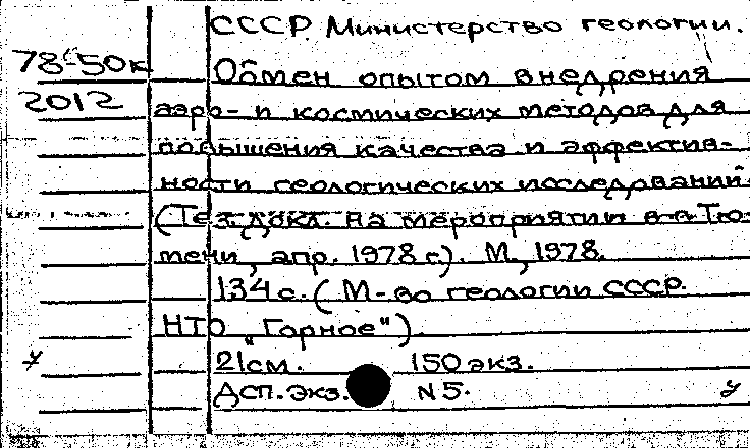 СССР Министерство геологии.
78-50к Обмен опытом внедрения
2012 аэро- и космических методов для
повышения качества и эффектив-
ности геологических исследований
(Тез. докл. на мероприятии в г. Тю-
мени, апр. 1978 г.). М., 1978.
134 с. (М-во геологии СССР.
НТО „Горное").
21 см. 150 экз.
Дсп. экз. N 5. у